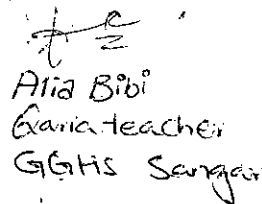 Alia Bibi
Qaria teacher
GGHS Sangar